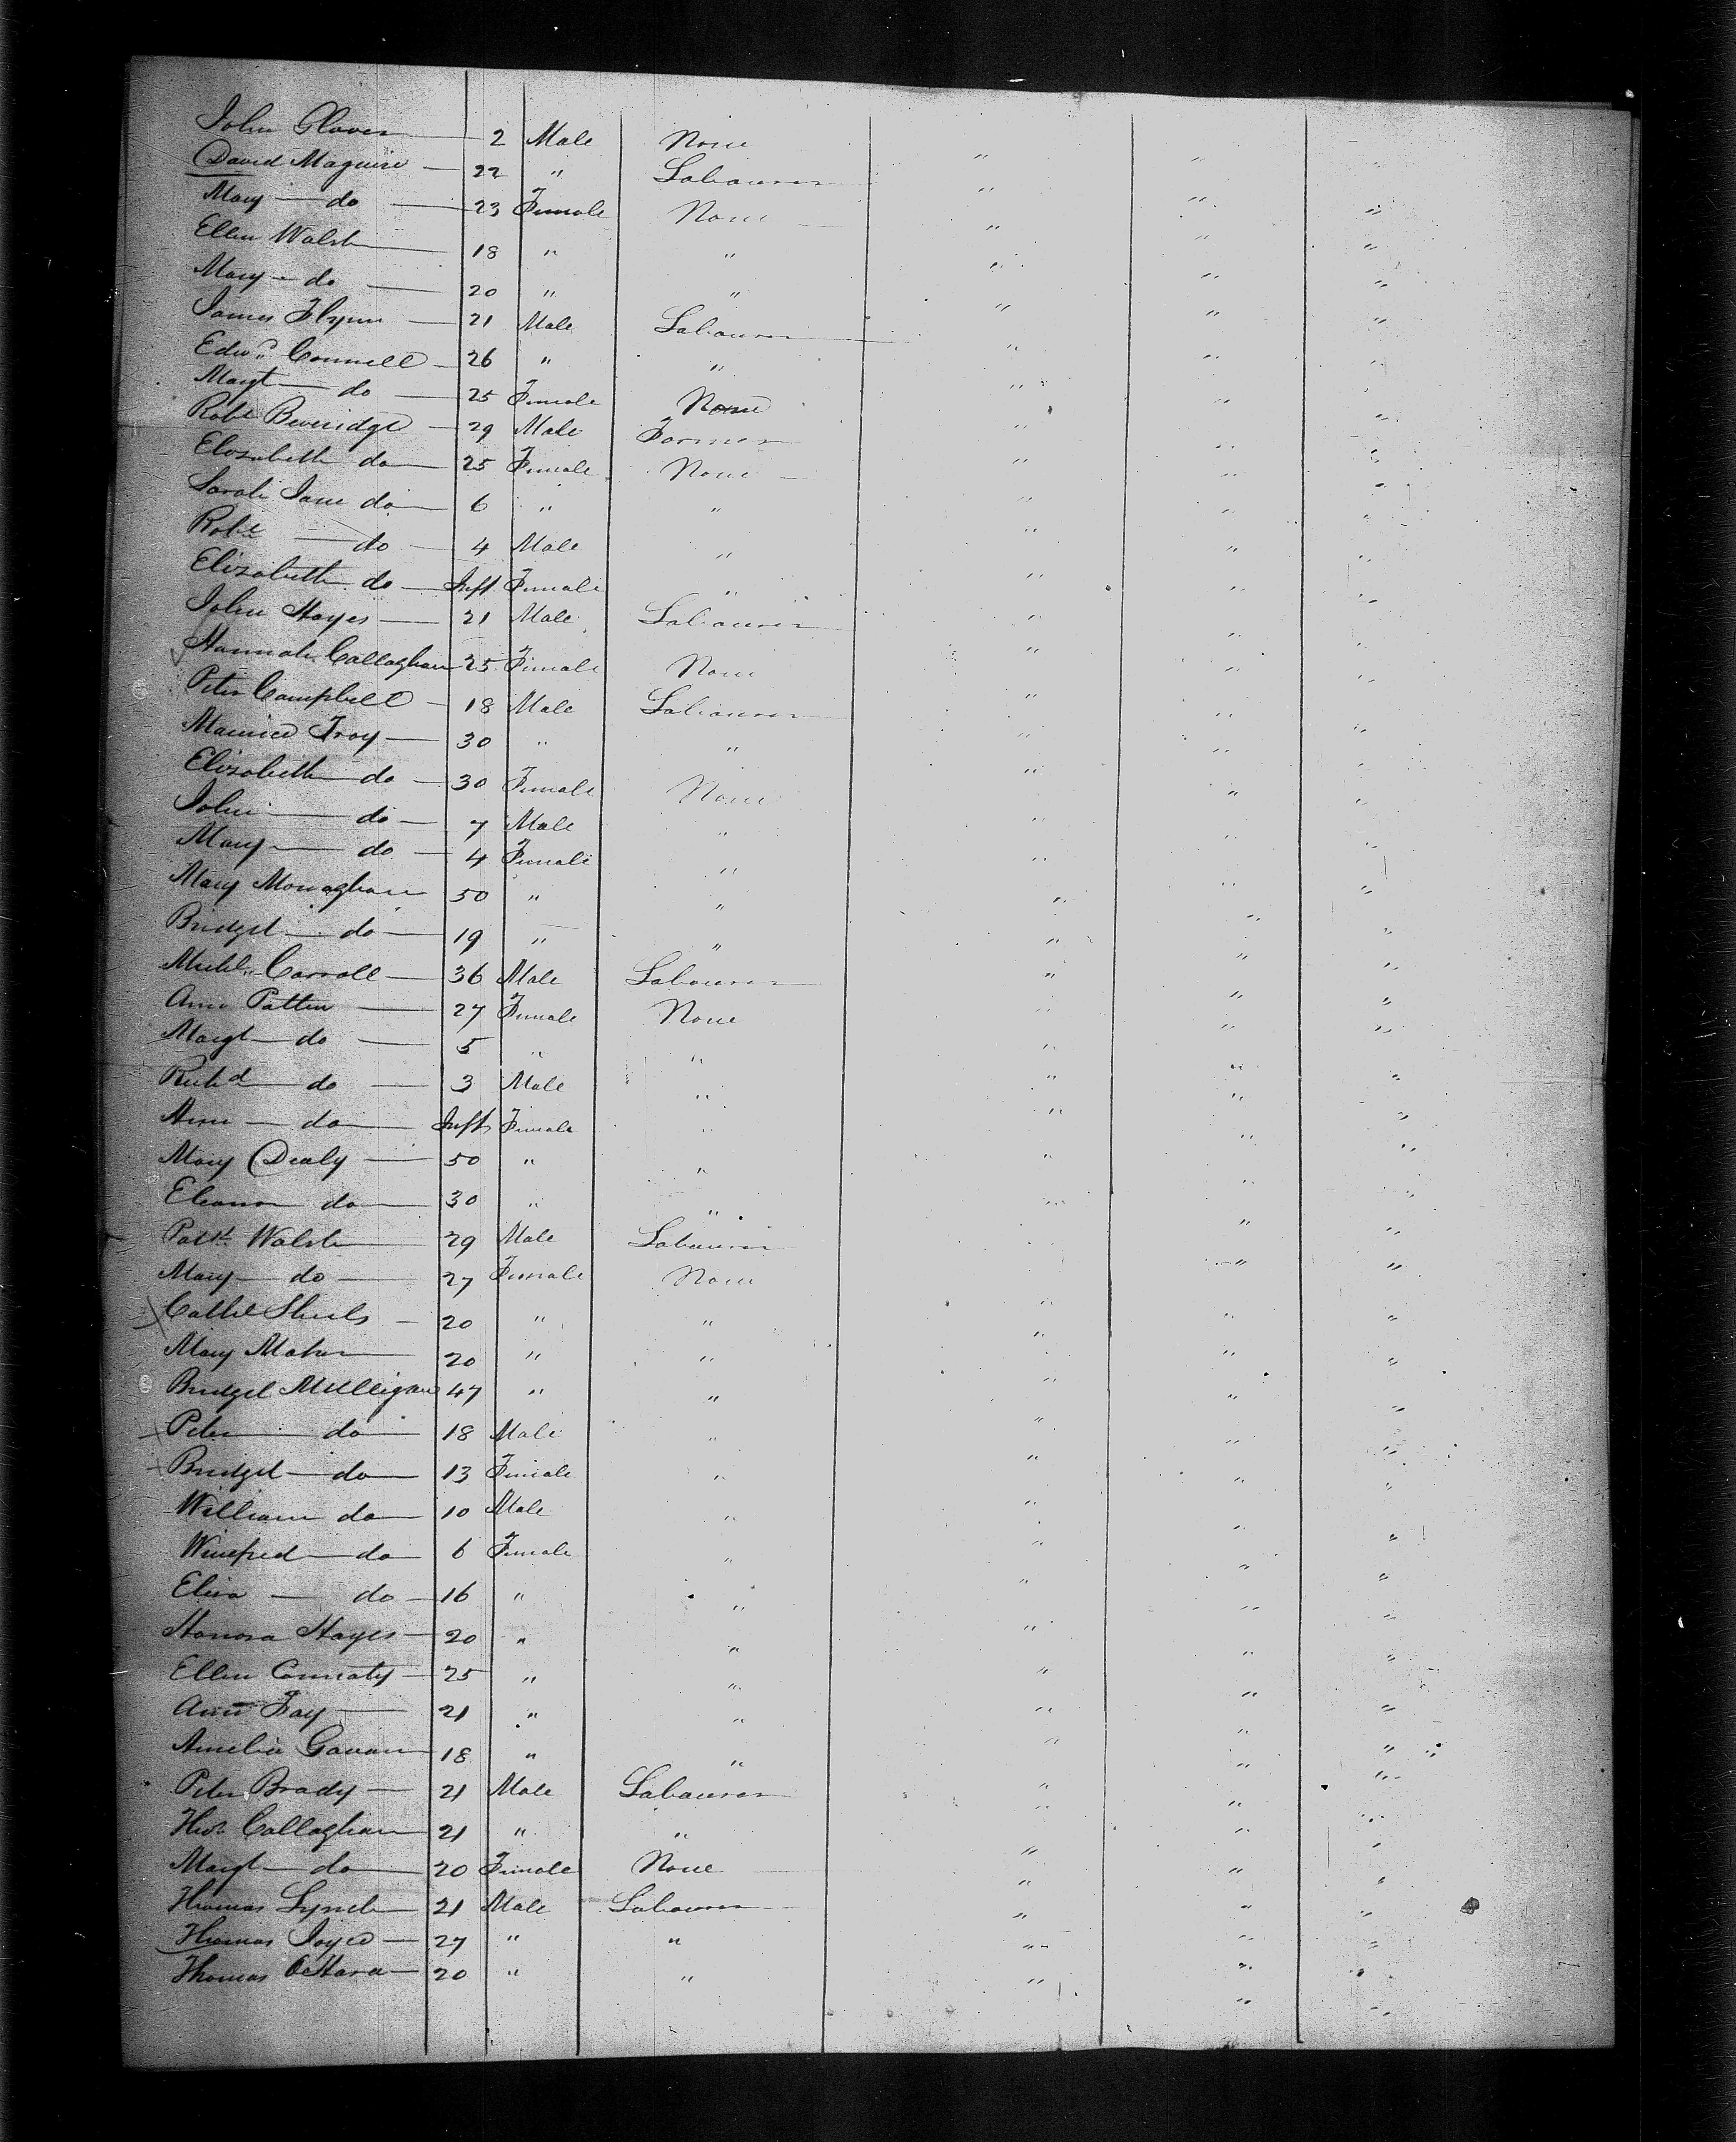 John Glover 2 Male None
David Maguire 22 " Labourer " " "
Mary do 23 Female None " " "
Ellen Walsh 18 " " " " "
Mary do 20 " " " " "
James Flynn 21 Male Labourer " " "
Edwd. Connell 26 " " " " "
Margt do 25 Female None " " "
Robt Beveridge 29 Male Farmer " " "
Elizabeth do 25 Female None " " "
Sarah Jane do 6 " " " " "
Robt do 4 Male " " " "
Elizabeth do Inft Female " " " "
John Hayes 21 Male Labourer " " "
Hannah Callaghan 25 Female None " " "
Peter Campbell 18 Male Labourer " " "
Maurice Troy 30 " " " " "
Elizabeth do 30 Female None " " "
John do 7 Male " " " "
Mary do 4 Female " " " "
Mary Monaghan 50 " " " " "
Bridget do 19 " " " " "
Michl. Carroll 36 Male Labourer " " "
Ann Patten 27 Female None " " "
Margt do 5 " " " " "
Richd do 3 Male " " " "
Ann do Inft Female " " " "
Mary Dealy 50 " " " " "
Eleanor do 30 " " " " "
Patk. Walsh 29 Male Labourer " "
Mary do 27 Female None " "
Cathe Sheils 20 " " " " "
Mary Maher 20 " " " " "
Bridget Mulligan 47 " " " " "
Peter do 18 Male " " " "
Bridget do 13 Female " " " "
William do 10 Male " " " "
Winefred do 6 Female " " " "
Eliza do 16 " " " " "
Honora Hayes 20 " " " " "
Ellen Connaty 25 " " " " "
Ann Fay 21 " " " " "
Amelia Gavan 18 " " " " "
Peter Brady 21 Male Labourer " " "
Thos. Callaghan 21 " " " " "
Margt do 20 Female None " " "
Thomas Lynch 21 Male Labourer " " "
Thomas Joyce 27 " " " " "
Thomas OHara 20 " " " " "